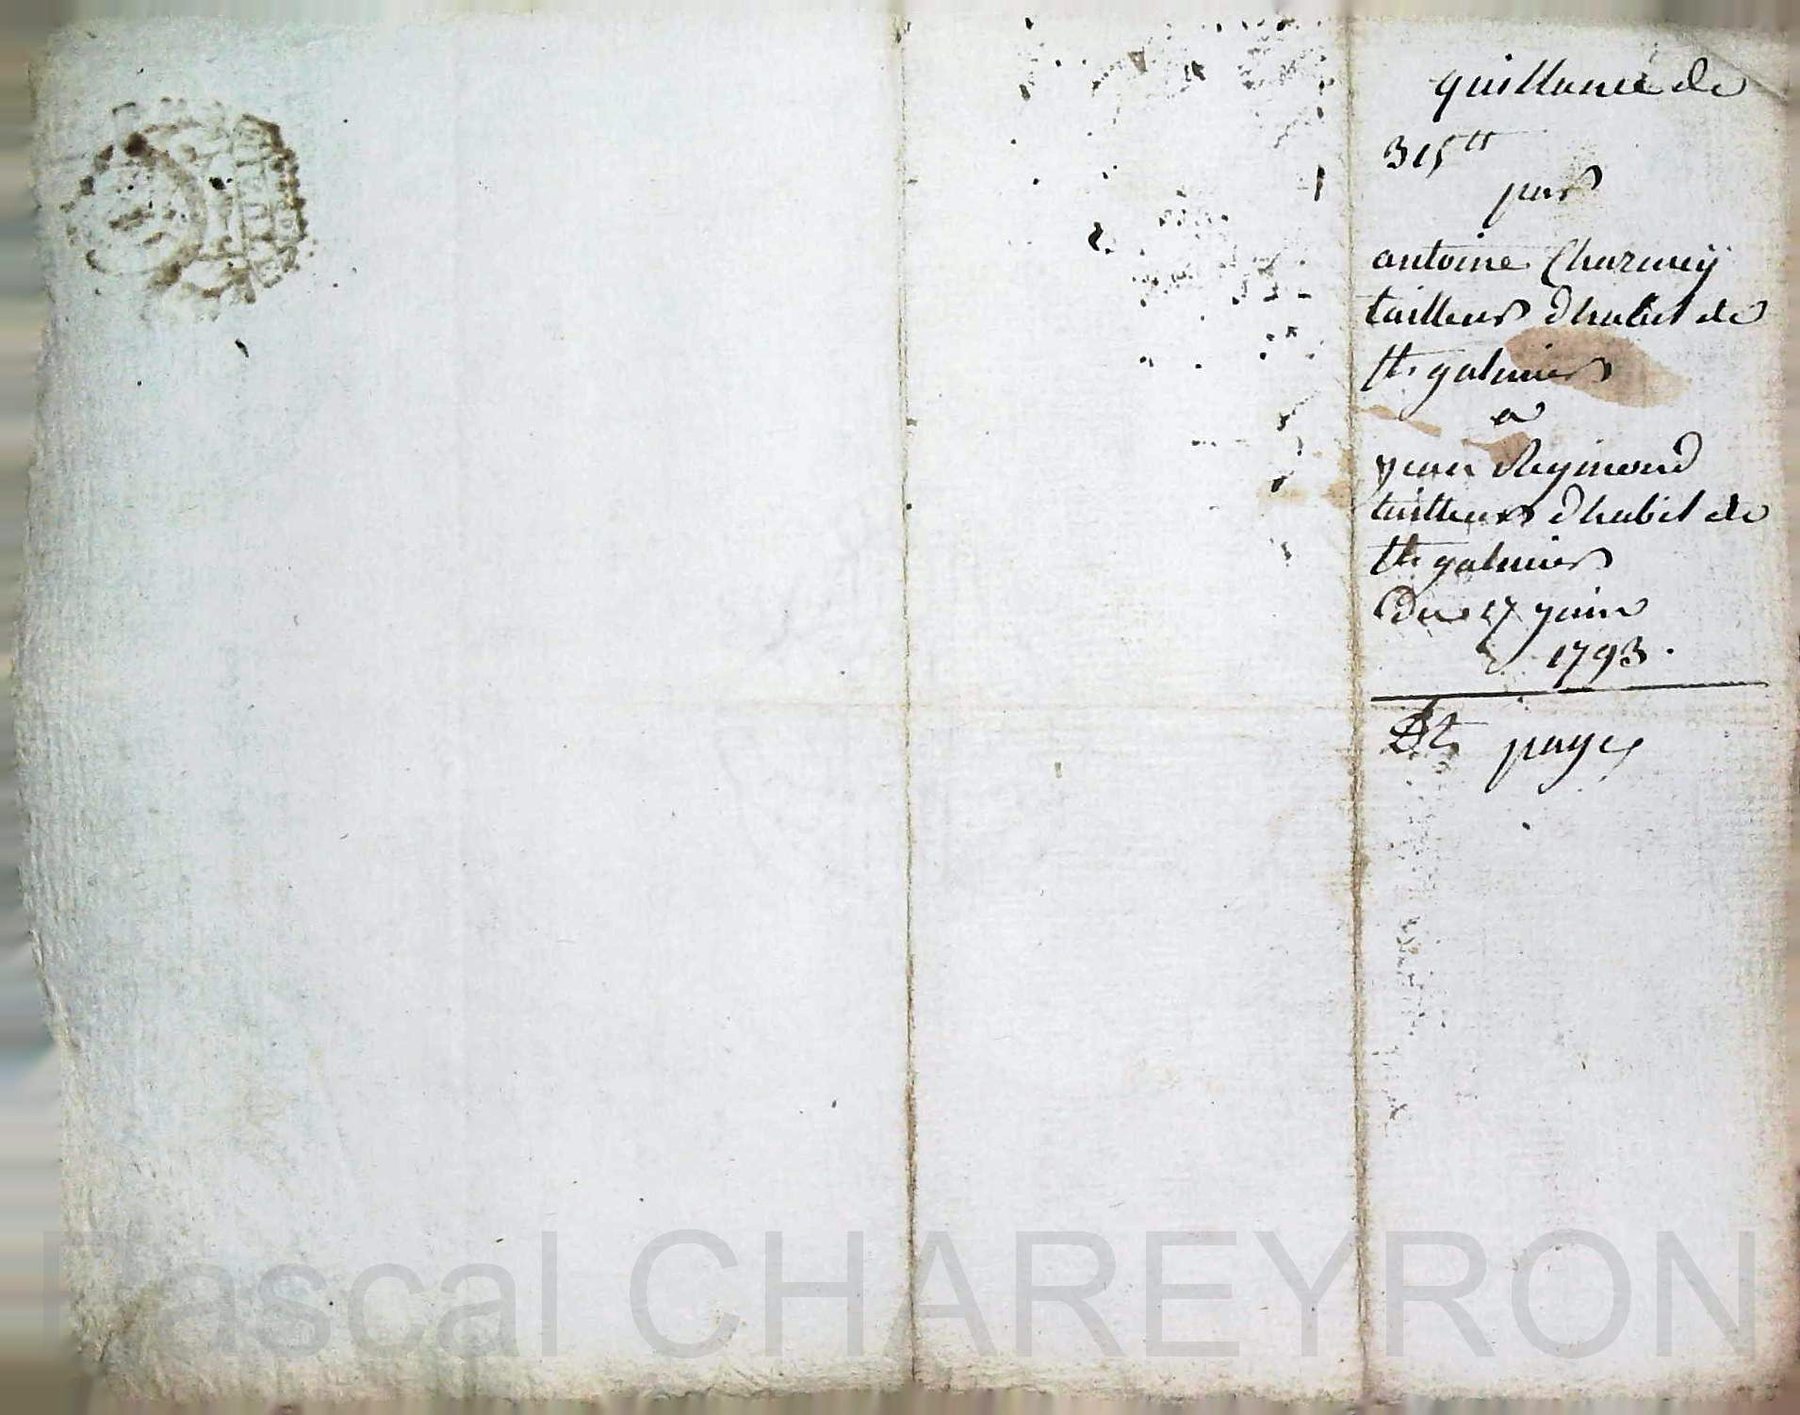 quittance de
315 tt
par
antoine Charmey
tailleur d'habit de
st galmier
a
jean Reymond
tailleur d'habit de
st galmier
Du 17 juin
1793.
payé
Pascal CHAREYRON